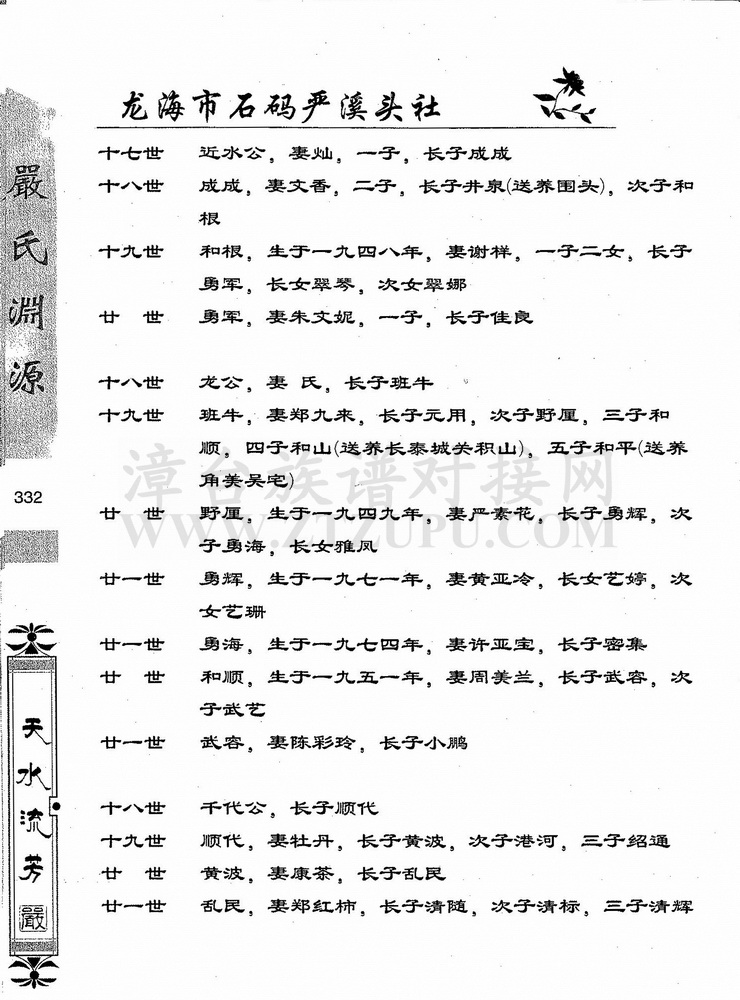 龙海市石码严溪头社
十七世 近水公，妻灿，一子，长子成成
十八世 成成，妻文香，二子，长子井泉(送养围头)，次子和
根
十九世 和根，生于一九四八年，妻谢样，一子二女，长子
勇军，长女翠琴，次女翠娜
廿 世 勇军，妻朱文妮，一子，长子佳良
十八世 龙公，妻 氏，长子班牛
十九世 班牛，妻郑九来，长子元用，次子野厘，三子和
顺，四子和山(送养长泰城关积山)，五子和平(送养
角美吴宅)
廿 世 野厘，生于一九四九年，妻严素花，长子勇辉，次
子勇海，长女雅凤
廿一世 勇辉，生于一九七一年，妻黄亚冷，长女艺婷，次
女艺珊
廿一世 勇海，生于一九七四年，妻许亚宝，长子密集
廿 世 和顺，生于一九五一年，妻周美兰，长子武容，次
子武艺
廿一世 武容，妻陈彩玲，长子小鹏
十八世 千代公，长子顺代
十九世 顺代，妻牡丹，长子黄波，次子港河，三子绍通
廿 世 黄波，妻康茶，长子乱民
廿一世 乱民，妻郑红柿，长子清随，次子清标，三子清辉
嚴氏淵源
332
天水流芳
嚴
漳台族谱对接网
WWW.ZTZUPU.COM